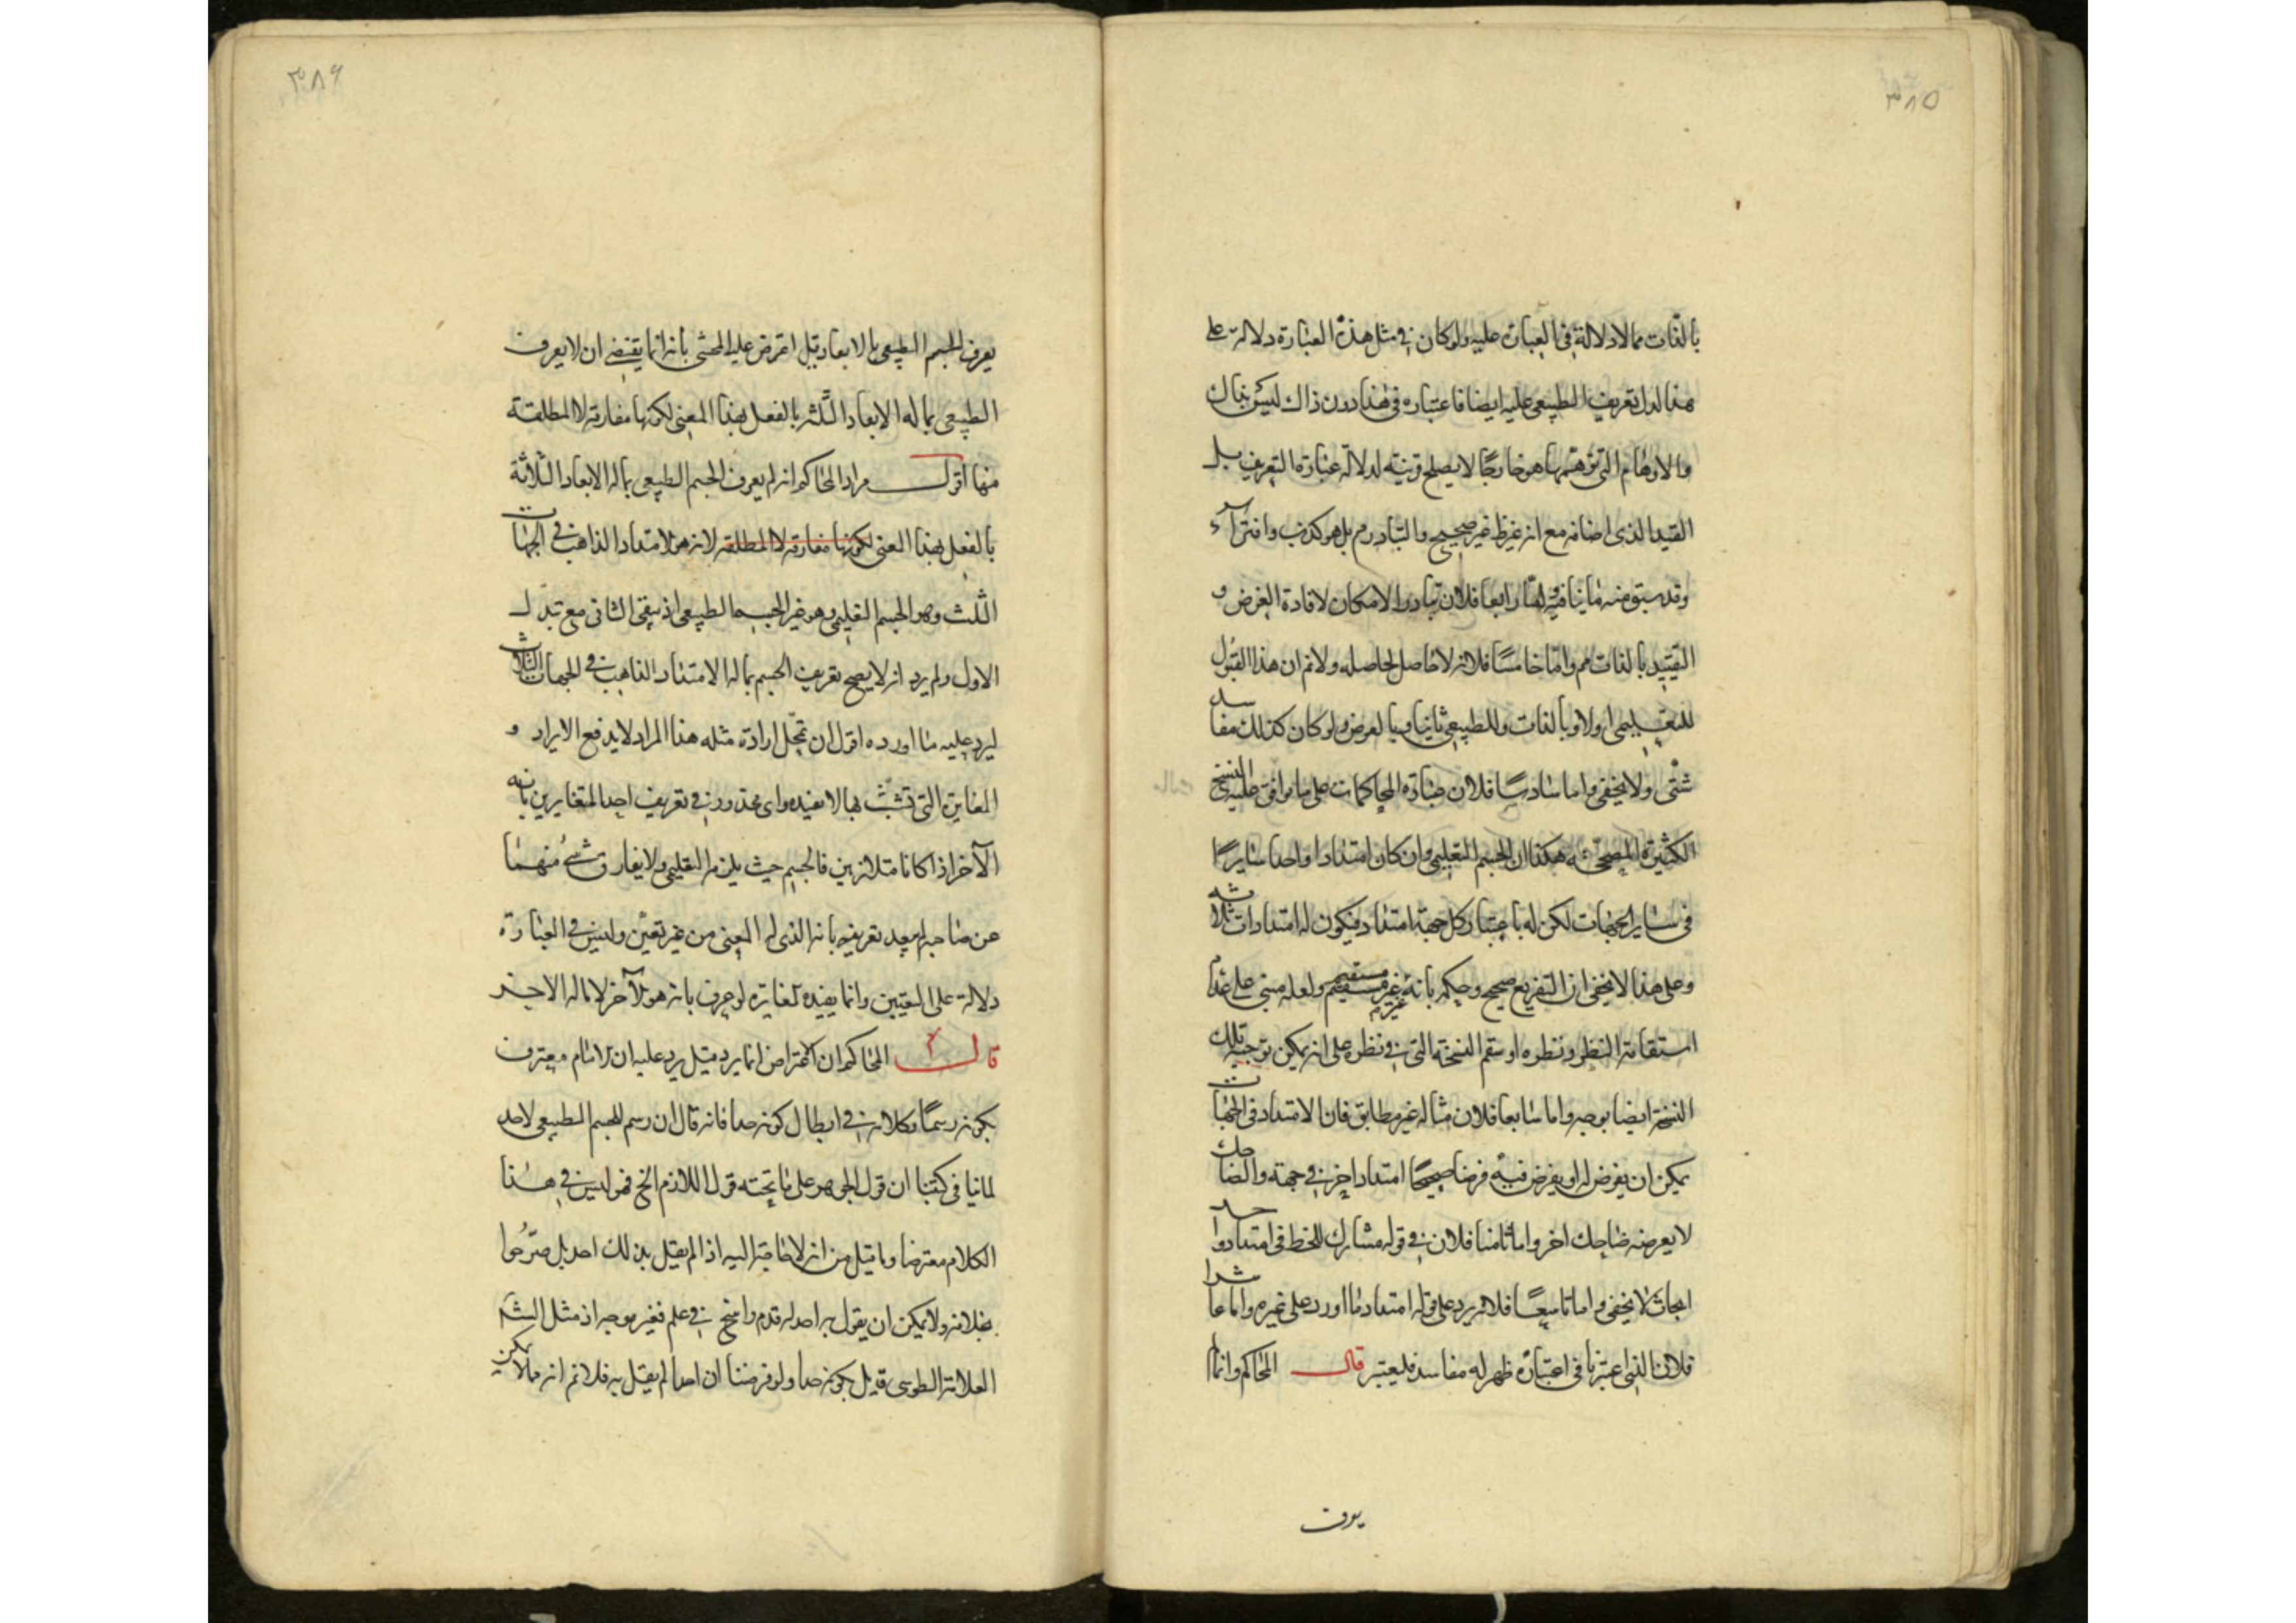 ٣٨٥
بالذات مما لا دلالة في العبارة عليه ولو كان في مثل هذه العبارة دلالة على
هذا لدل تعريف الطبيعي عليه ايضا فاعتباره في هذا دون ذاك ليس بذاك
والاوهام التي هو خارجا لا يصلح قرينة لدلالة عبارة التعريف بل
القيد الذي اضافه مع انه غير صحيح والتبادر مم بل هو كذب وافتراء
وقد سبق منه ما ينافيه واما رابعا فلان تبادر الامكان لافادة الغرض و
التقييد بالذات مم واما خامسا فلانه لا حاصل لحاصله ولانم ان هذا القبول
للتعليمي اولا وبالذات وللطبيعي ثانيا وبالعرض ولو كان كذلك مفاسد
شتى ولا يخفى واما سادسا فلان عبارة المحاكمات على ما توافق عليه النسخ
الكثيرة المصححة هكذا ان الجسم التعليمي وان كان امتدادا واحدا سايرا
في ساير الجهات لكن له باعتبار كل جهة امتداد فيكون له امتدادات ثلاثة
وعلى هذا لا يخفى ان التفريع صحيح وحكمه بانه غير مستقيم ولعله مبني على عدم
استقامة النظر ونظره او سقم النسخة التي في نظره على انه يمكن توجيه تلك
النسخة ايضا بوجه واما سابعا فلان مثاله غير مطابق فان الامتداد في الجهات
يمكن ان يفرض له او يفرض فيه فرضا صحيحا امتداد اخر في جهة والضاحك
لا يعرضه ضاحك اخر واما ثامنا فلان في قوله مشارك للخط في امتداد واحد
ابحاث لا يخفى واما تاسعا فلانه يرد على قوله امتداد ما اورد على غيره واما عاشرا
فلان الذي اعتبرنا في اعتباره ظهر له مفاسد فليعتبر قال المحاكم وانما
يعرف
٣٨٦
يعرف الجسم الطبيعي بالابعاد قيل اعترض عليه المحشي بانه انما يقتضي ان لا يعرف
الطبيعي بما له الابعاد الثلثة بالفعل بهذا المعنى لكونها مفارقة لا المطلقة
منها اقول مراد المحاكم انه لم يعرف الجسم الطبيعي بما له الابعاد الثلاثة
بالفعل بهذا المعنى لكونها مفارقة لا المطلقة لانه هو الامتداد الذاهب في الجهات
الثلث وهو الجسم التعليمي وهو غير الجسم الطبيعي اذ يبقى الثاني مع تبدل
الاول ولم يرد انه لا يصح تعريف الجسم بما له الامتداد الذاهب في الجهات الثلاث
ليرد عليه ما اورده اقول ان تحمل ارادة مثله هذا المراد لا يدفع الايراد و
المغايرة التي تشبث بها لا تفيده واي محذور في تعريف احد المتغايرين بانه
الآخر اذا كانا متلازمين فالجسم حيث يلزمه التعليمي ولا يفارق شئ منهما
عن صاحبه لم يبعد تعريفه بانه الذي له المعنى من غير تعين وليس في العبارة
دلالة على التعيين وانما يفيده تغايره لو عرف بانه هو الآخر لا ما له الاخر
قال المحاكم ان الاعتراض انما يرد قيل يرد عليه ان الامام معترف
بكونه رسما وكلامه في ابطال كونه حدا فانه قال ان رسم للجسم الطبيعي لا حد
لما بينا في كتبنا ان قول الجوهر على ما تحته قول اللازم الخ فهو ليس في هذا
الكلام معترضا وما قيل من انه لا حاجة اليه اذ لم يقل بذلك احد بل صرحوا
بخلافه ولا يمكن ان يقول به احد له قدم راسخ في علم فغير موجه اذ مثل
العلامة الطوسي قد قيل بكونه حدا ولو فرضنا ان احدا لم يقل به فلانم انه مما لا يمكن